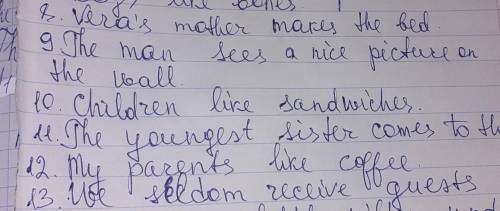 like
8. Vera's mother makes the bed.
9. The man sees a nice picture on
the wall.
10. Children like sandwiches.
11. The youngest sister comes to th
12. My parents like coffee.
13. We seldom receive guests